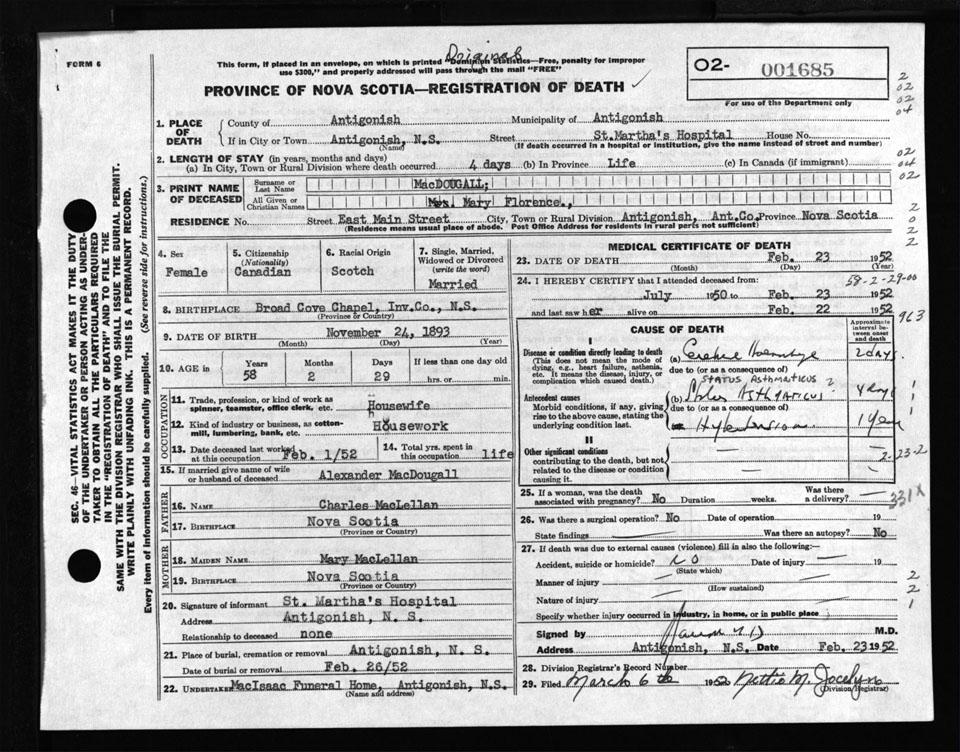 FORM 6
Original
This form, if placed in an envelope, on which is printed "Dominion Statistics—Free, penalty for improper
use $300," and properly addressed will pass through the mail "FREE"
PROVINCE OF NOVA SCOTIA—REGISTRATION OF DEATH
02- 001685
For use of the Department only
2
02
02
04
1. PLACE OF DEATH
County of Antigonish Municipality of Antigonish
If in City or Town Antigonish, N.S. Street St.Martha's Hospital House No.
(Name) (If death occurred in a hospital or institution, give the name instead of street and number)
02
04
02
2. LENGTH OF STAY (in years, months and days)
(a) In City, Town or Rural Division where death occurred 4 days (b) In Province Life (c) In Canada (if immigrant)
3. PRINT NAME OF DECEASED
Surname or Last Name MacDOUGALL;
All Given or Christian Names Mrs. Mary Florence.,
RESIDENCE No. Street East Main Street City, Town or Rural Division Antigonish, Ant.Co. Province Nova Scotia
(Residence means usual place of abode. Post Office Address for residents in rural parts not sufficient)
2
0
2
2
4. Sex
Female
5. Citizenship
(Nationality)
Canadian
6. Racial Origin
Scotch
7. Single, Married,
Widowed or Divorced
(write the word)
Married
8. BIRTHPLACE Broad Cove Chapel, Inv.Co., N.S.
(Province or Country)
9. DATE OF BIRTH November 24, 1893
(Month) (Day) (Year)
10. AGE in
Years Months Days If less than one day old
58 2 29 hrs. or min.
OCCUPATION
11. Trade, profession, or kind of work as
spinner, teamster, office clerk, etc. Housewife
12. Kind of industry or business, as cotton-
mill, lumbering, bank, etc. Housework
13. Date deceased last worked
at this occupation Feb. 1/52
14. Total yrs. spent in
this occupation life
15. If married give name of wife
or husband of deceased Alexander MacDougall
FATHER
16. Name Charles MacLellan
17. Birthplace Nova Scotia
(Province or Country)
MOTHER
18. Maiden Name Mary MacLellan
19. Birthplace Nova Scotia
(Province or Country)
20. Signature of informant St. Martha's Hospital
Address Antigonish, N. S.
Relationship to deceased none
21. Place of burial, cremation or removal Antigonish, N. S.
Date of burial or removal Feb. 26/52
22. Undertaker MacIsaac Funeral Home, Antigonish, N.S.
(Name and address)
MEDICAL CERTIFICATE OF DEATH
23. DATE OF DEATH Feb. 23 1952
(Month) (Day) (Year)
24. I HEREBY CERTIFY that I attended deceased from: 58-2-29-00
July 1950 to Feb. 23 1952
and last saw her alive on Feb. 22 1952
963
CAUSE OF DEATH
Approximate
interval between
onset
and death
I
Disease or condition directly leading to death
(This does not mean the mode of
dying, e.g., heart failure, asthenia,
etc. It means the disease, injury, or
complication which caused death.)
(a) 2 days
due to (or as a consequence of)
STATUS ASTHMATICUS ?
Antecedent causes
Morbid conditions, if any, giving
rise to the above cause, stating the
underlying condition last.
(b) Status Asthmaticus
due to (or as a consequence of)
Hypertension 1 Year
II
Other significant conditions
contributing to the death, but not
related to the disease or condition
causing it.
2-23-2
25. If a woman, was the death
associated with pregnancy? No Duration weeks. Was there
a delivery? —
331X
26. Was there a surgical operation? No Date of operation 19
State findings Was there an autopsy? No
27. If death was due to external causes (violence) fill in also the following:—
Accident, suicide or homicide? No Date of injury 19
(State which)
Manner of injury
(How sustained)
Nature of injury
Specify whether injury occurred in industry, in home, or in public place
2
2
1
Signed by M.D.
Address Antigonish, N.S. Date Feb. 23 1952
28. Division Registrar's Record Number
29. Filed March 6th 1952 Nettie M. Jocelyn
(Division Registrar)
SEC. 46—VITAL STATISTICS ACT MAKES IT THE DUTY
OF THE UNDERTAKER OR PERSON ACTING AS UNDER-
TAKER TO OBTAIN ALL THE PARTICULARS REQUIRED
IN THE "REGISTRATION OF DEATH" AND TO FILE THE
SAME WITH THE DIVISION REGISTRAR WHO SHALL ISSUE THE BURIAL PERMIT.
WRITE PLAINLY WITH UNFADING INK. THIS IS A PERMANENT RECORD.
Every item of information should be carefully supplied. (See reverse side for instructions.)